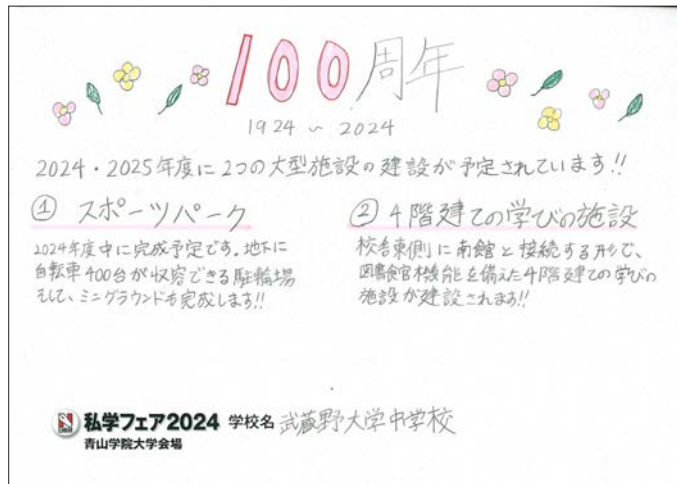 100周年
1924〜2024
2024・2025年度に2つの大型施設の建設が予定されています!!
① スポーツパーク
2024年度中に完成予定です。地下に
自転車400台が収容できる駐輪場
そして、ミニグラウンドも完成します!!
② 4階建ての学びの施設
校舎東側に南館と接続する形で、
図書館機能を備えた4階建ての学びの
施設が建設されます!!
私学フェア2024 学校名 武蔵野大学中学校
青山学院大学会場